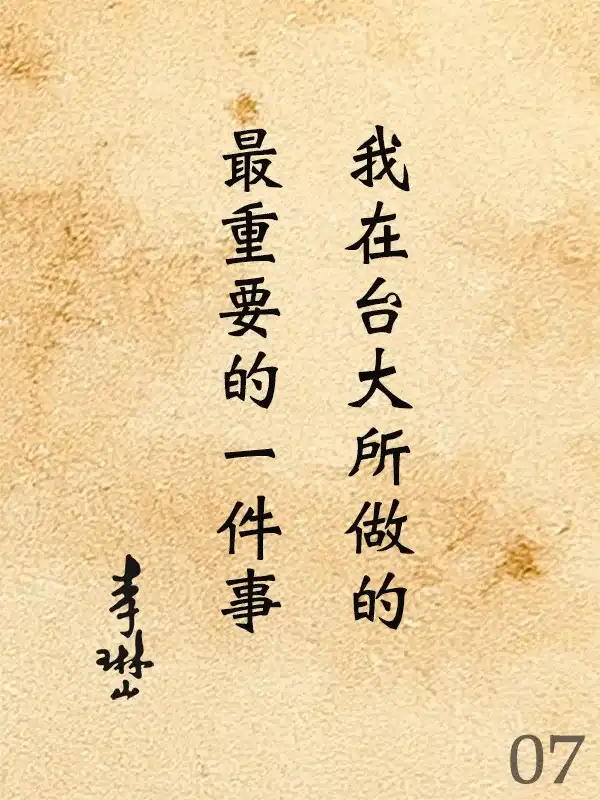 我在台大所做的
最重要的一件事
李琳山
07